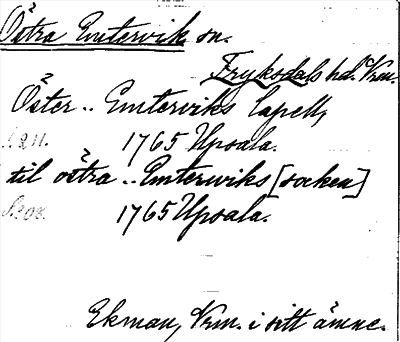 Östra Emtervik sn.
Fryksdals hd. Vrm.
Öster-Emterviks Capell,
S. 211. 1765 Upsala.
til östra-Emterwiks [socken]
1765 Upsala.
Ekman, Vrm. i sitt ämne.